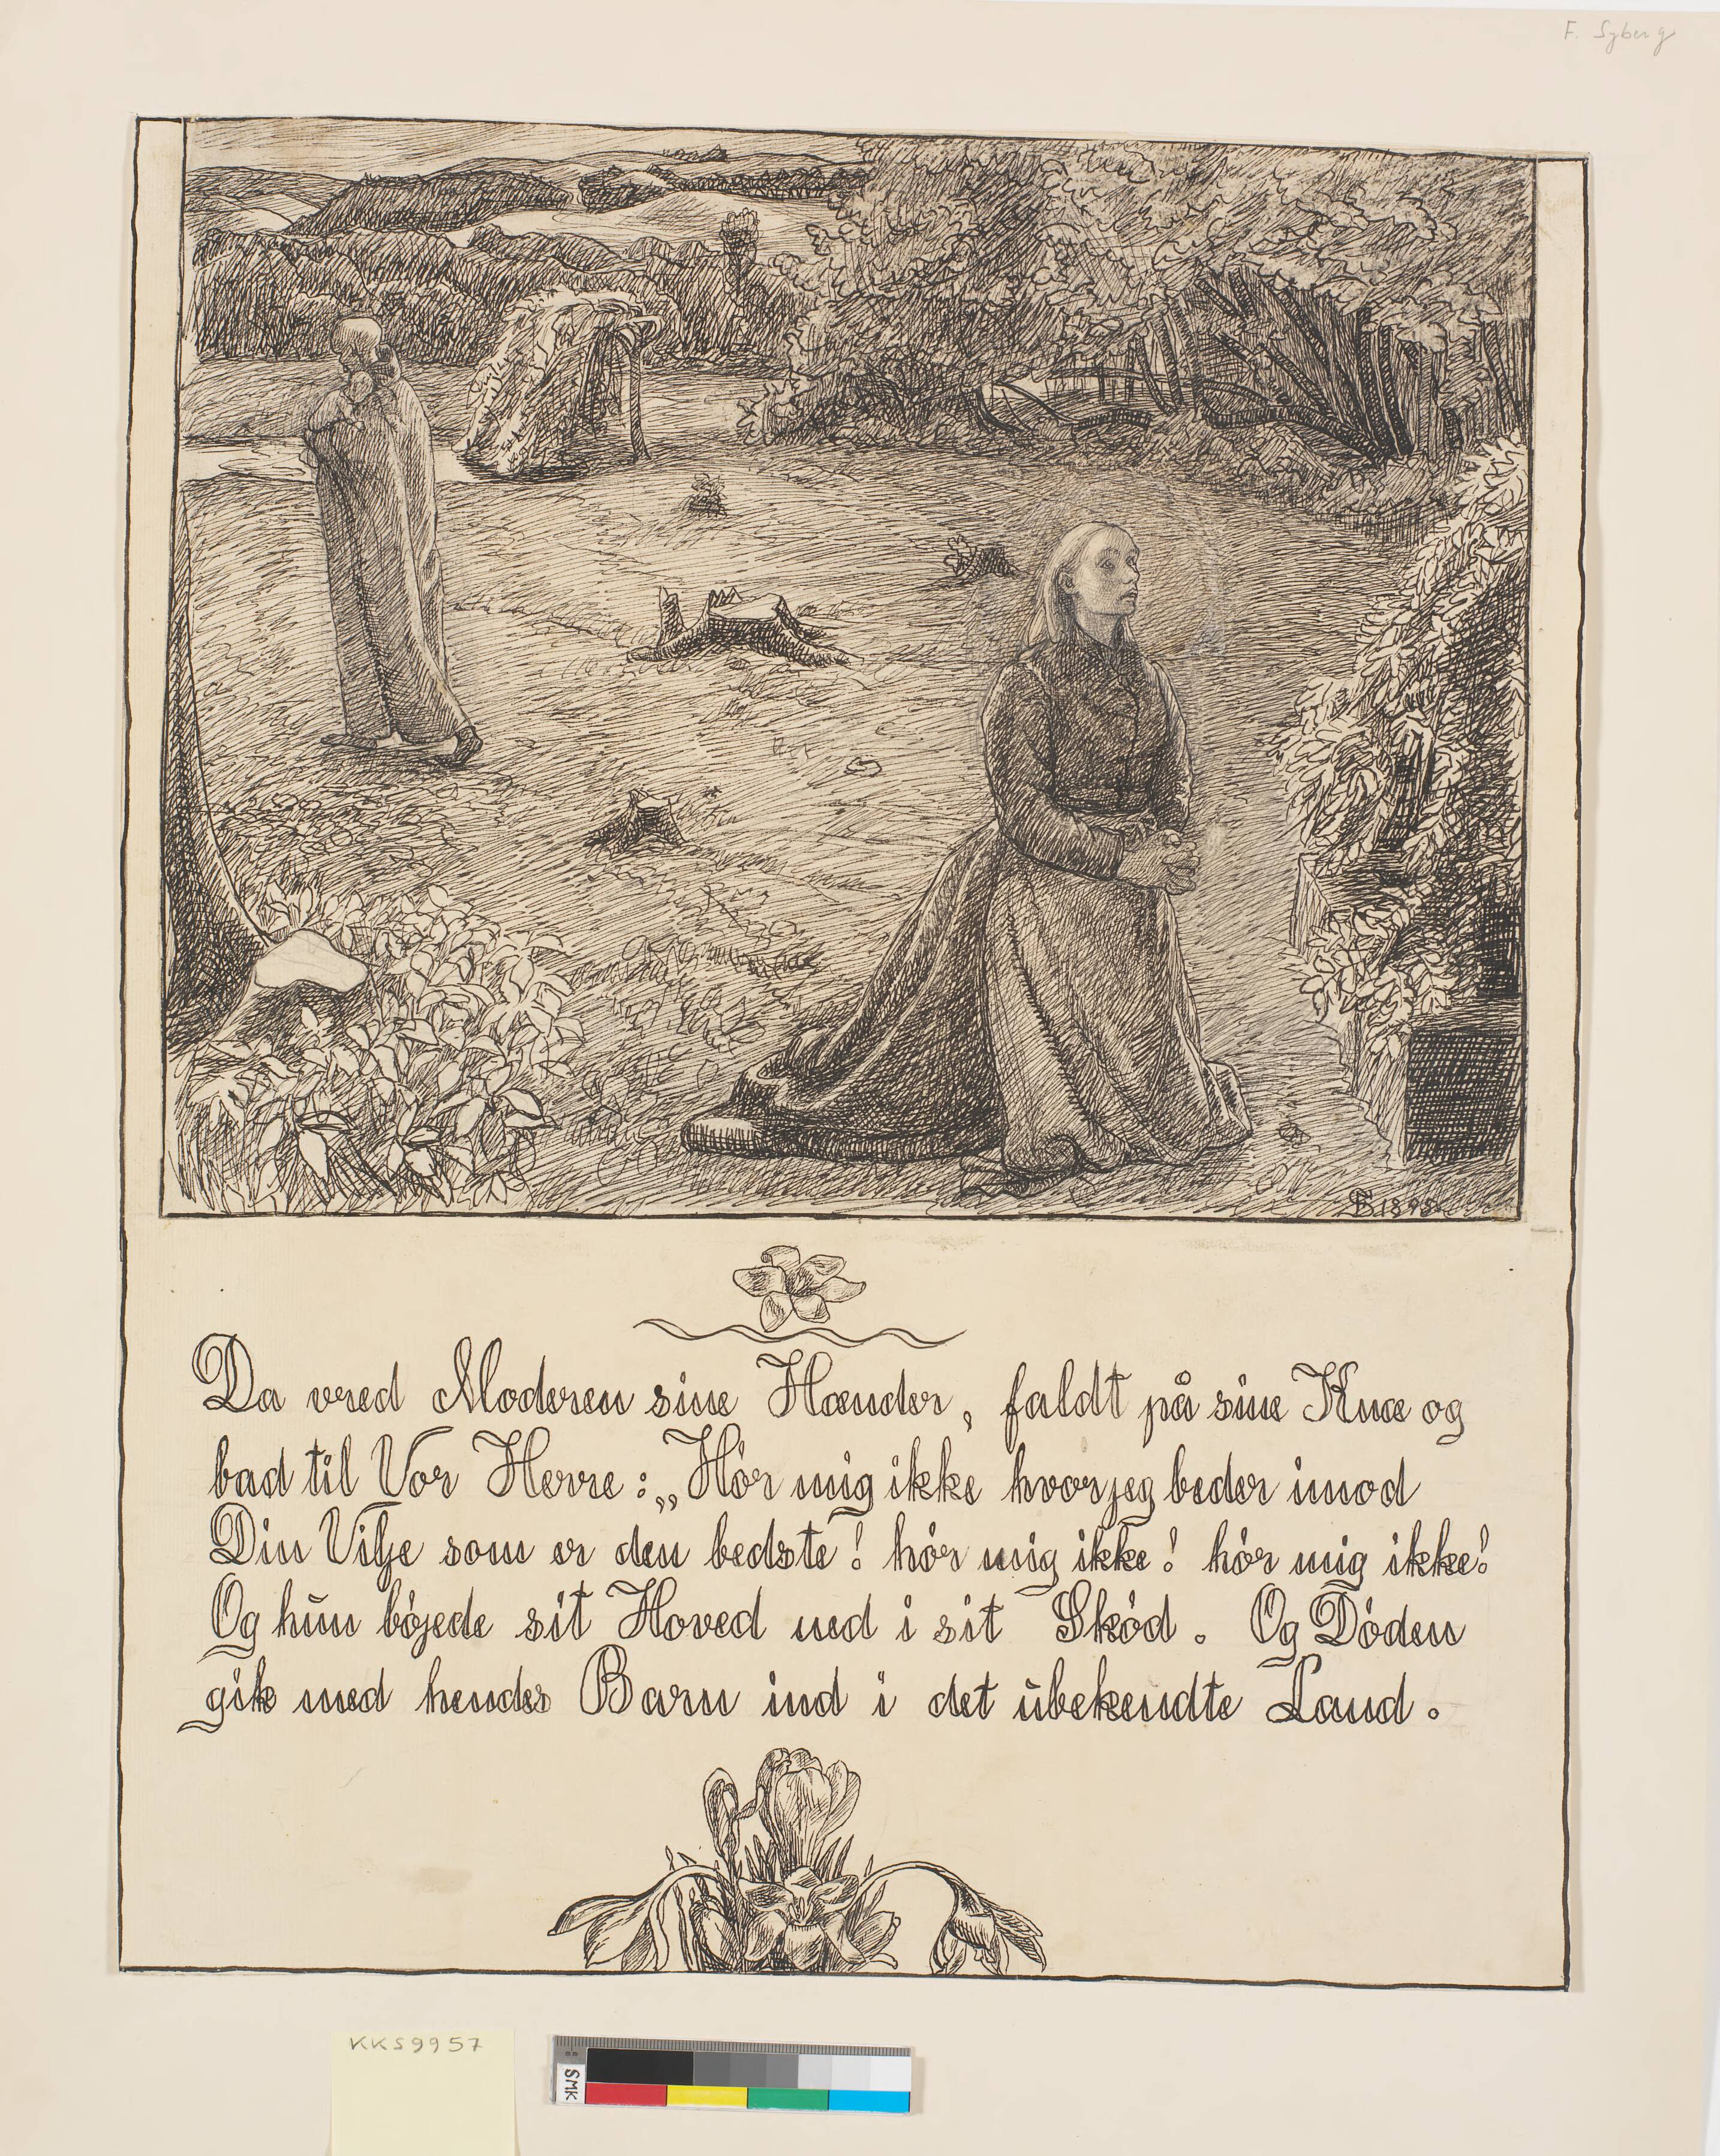 F. Syberg
FS 1898
Da vred Moderen sine Hænder, faldt på sine Knæ og
bad til Vor Herre: „Hör mig ikke hvor jeg beder imod
Din Vilje som er den bedste! hör mig ikke! hör mig ikke!
Og hun böjede sit Hoved ned i sit Sköd. Og Döden
gik med hendes Barn ind i det ubekendte Land.
KKS9957
SMK